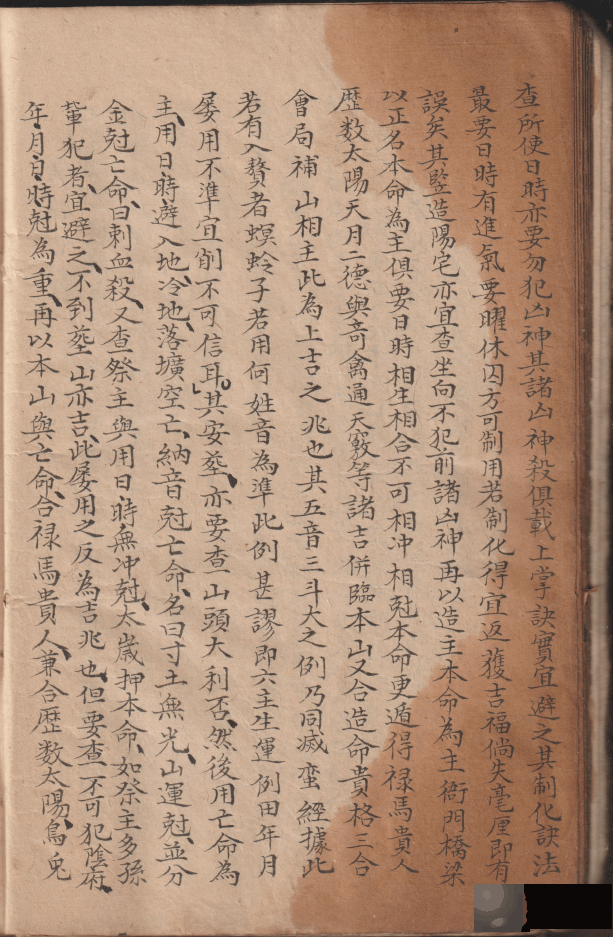 查所使日時亦要勿犯凶神其諸凶神殺俱載上掌訣實宜避之其制化訣法
最要日時有進氣要曜休囚方可制用若制化得宜返獲吉福倘失毫厘即有
誤矣其竪造陽宅亦宜查坐向不犯前諸凶神再以造主本命為主衙門橋梁
以正名本命為主俱要日時相生相合不可相冲相尅本命更遁得禄馬貴人
歷数太陽天月二德與竒禽通天竅等諸吉併臨本山又合造命貴格三合
會局補山相主此為上吉之兆也其五音三斗大之例乃同滅蛮經據此
若有入贅者螟蛉子若用何姓音為準此例甚謬即六主生運例田年月
屡用不準宜削不可信耳其安葬亦要查山頭大利否然後用亡命為
主用日時避入地冷地落壙空亡納音尅亡命名曰寸土無光山運尅並分
金尅亡命曰剌血殺又查祭主與用日時無冲尅太歲押本命如祭主多孫
輩犯者宜避之不到塟山亦吉此屡用之反為吉兆也但要查一不可犯陰府
年月日時尅為重再以本山與亡命合禄馬貴人兼合歷数太陽烏兎